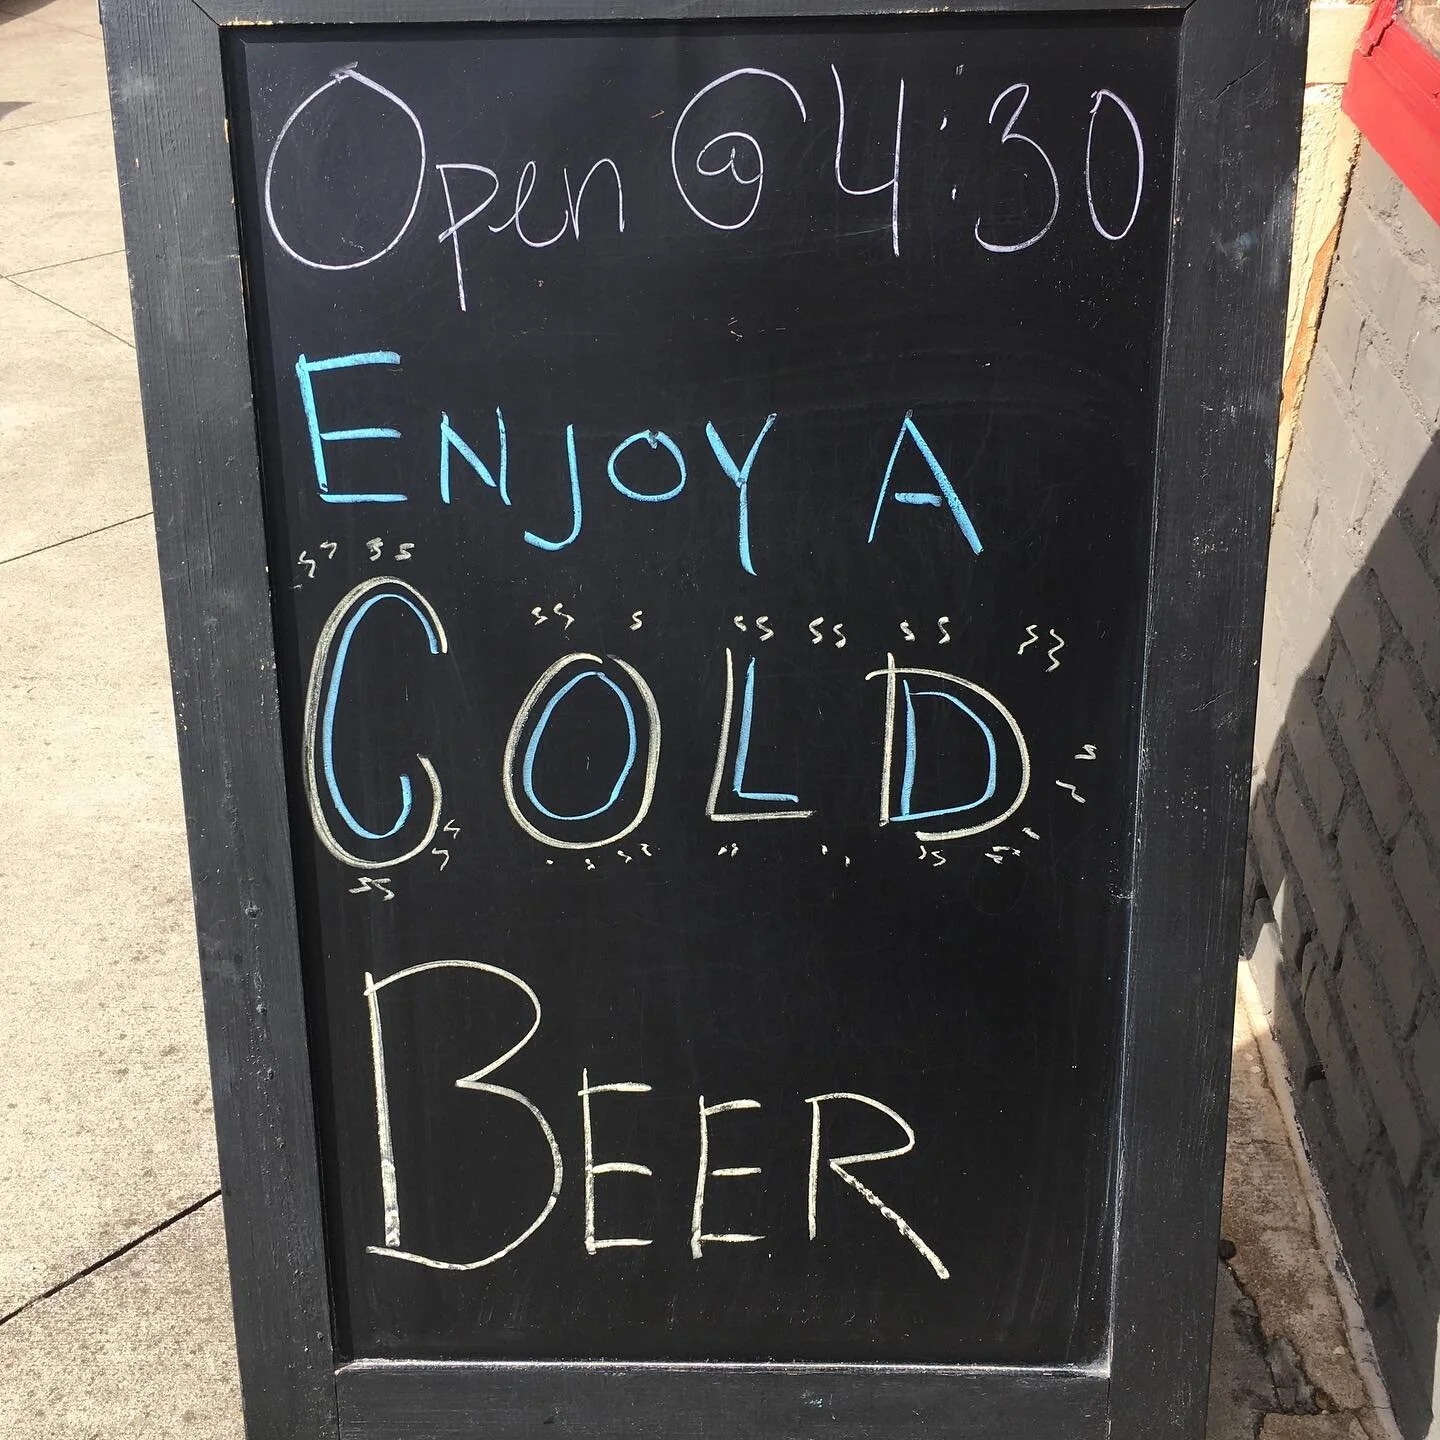 Open @ 4:30
ENJOY A
COLD
BEER